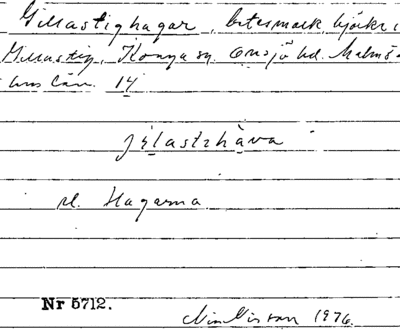 Gillastighagar, betesmark björkr
Gillastig, Konga sn. Onsjö hd. Malmö-
hus län. 14
jílastihàva
el. Hagarna
Nr 5712.
1976.